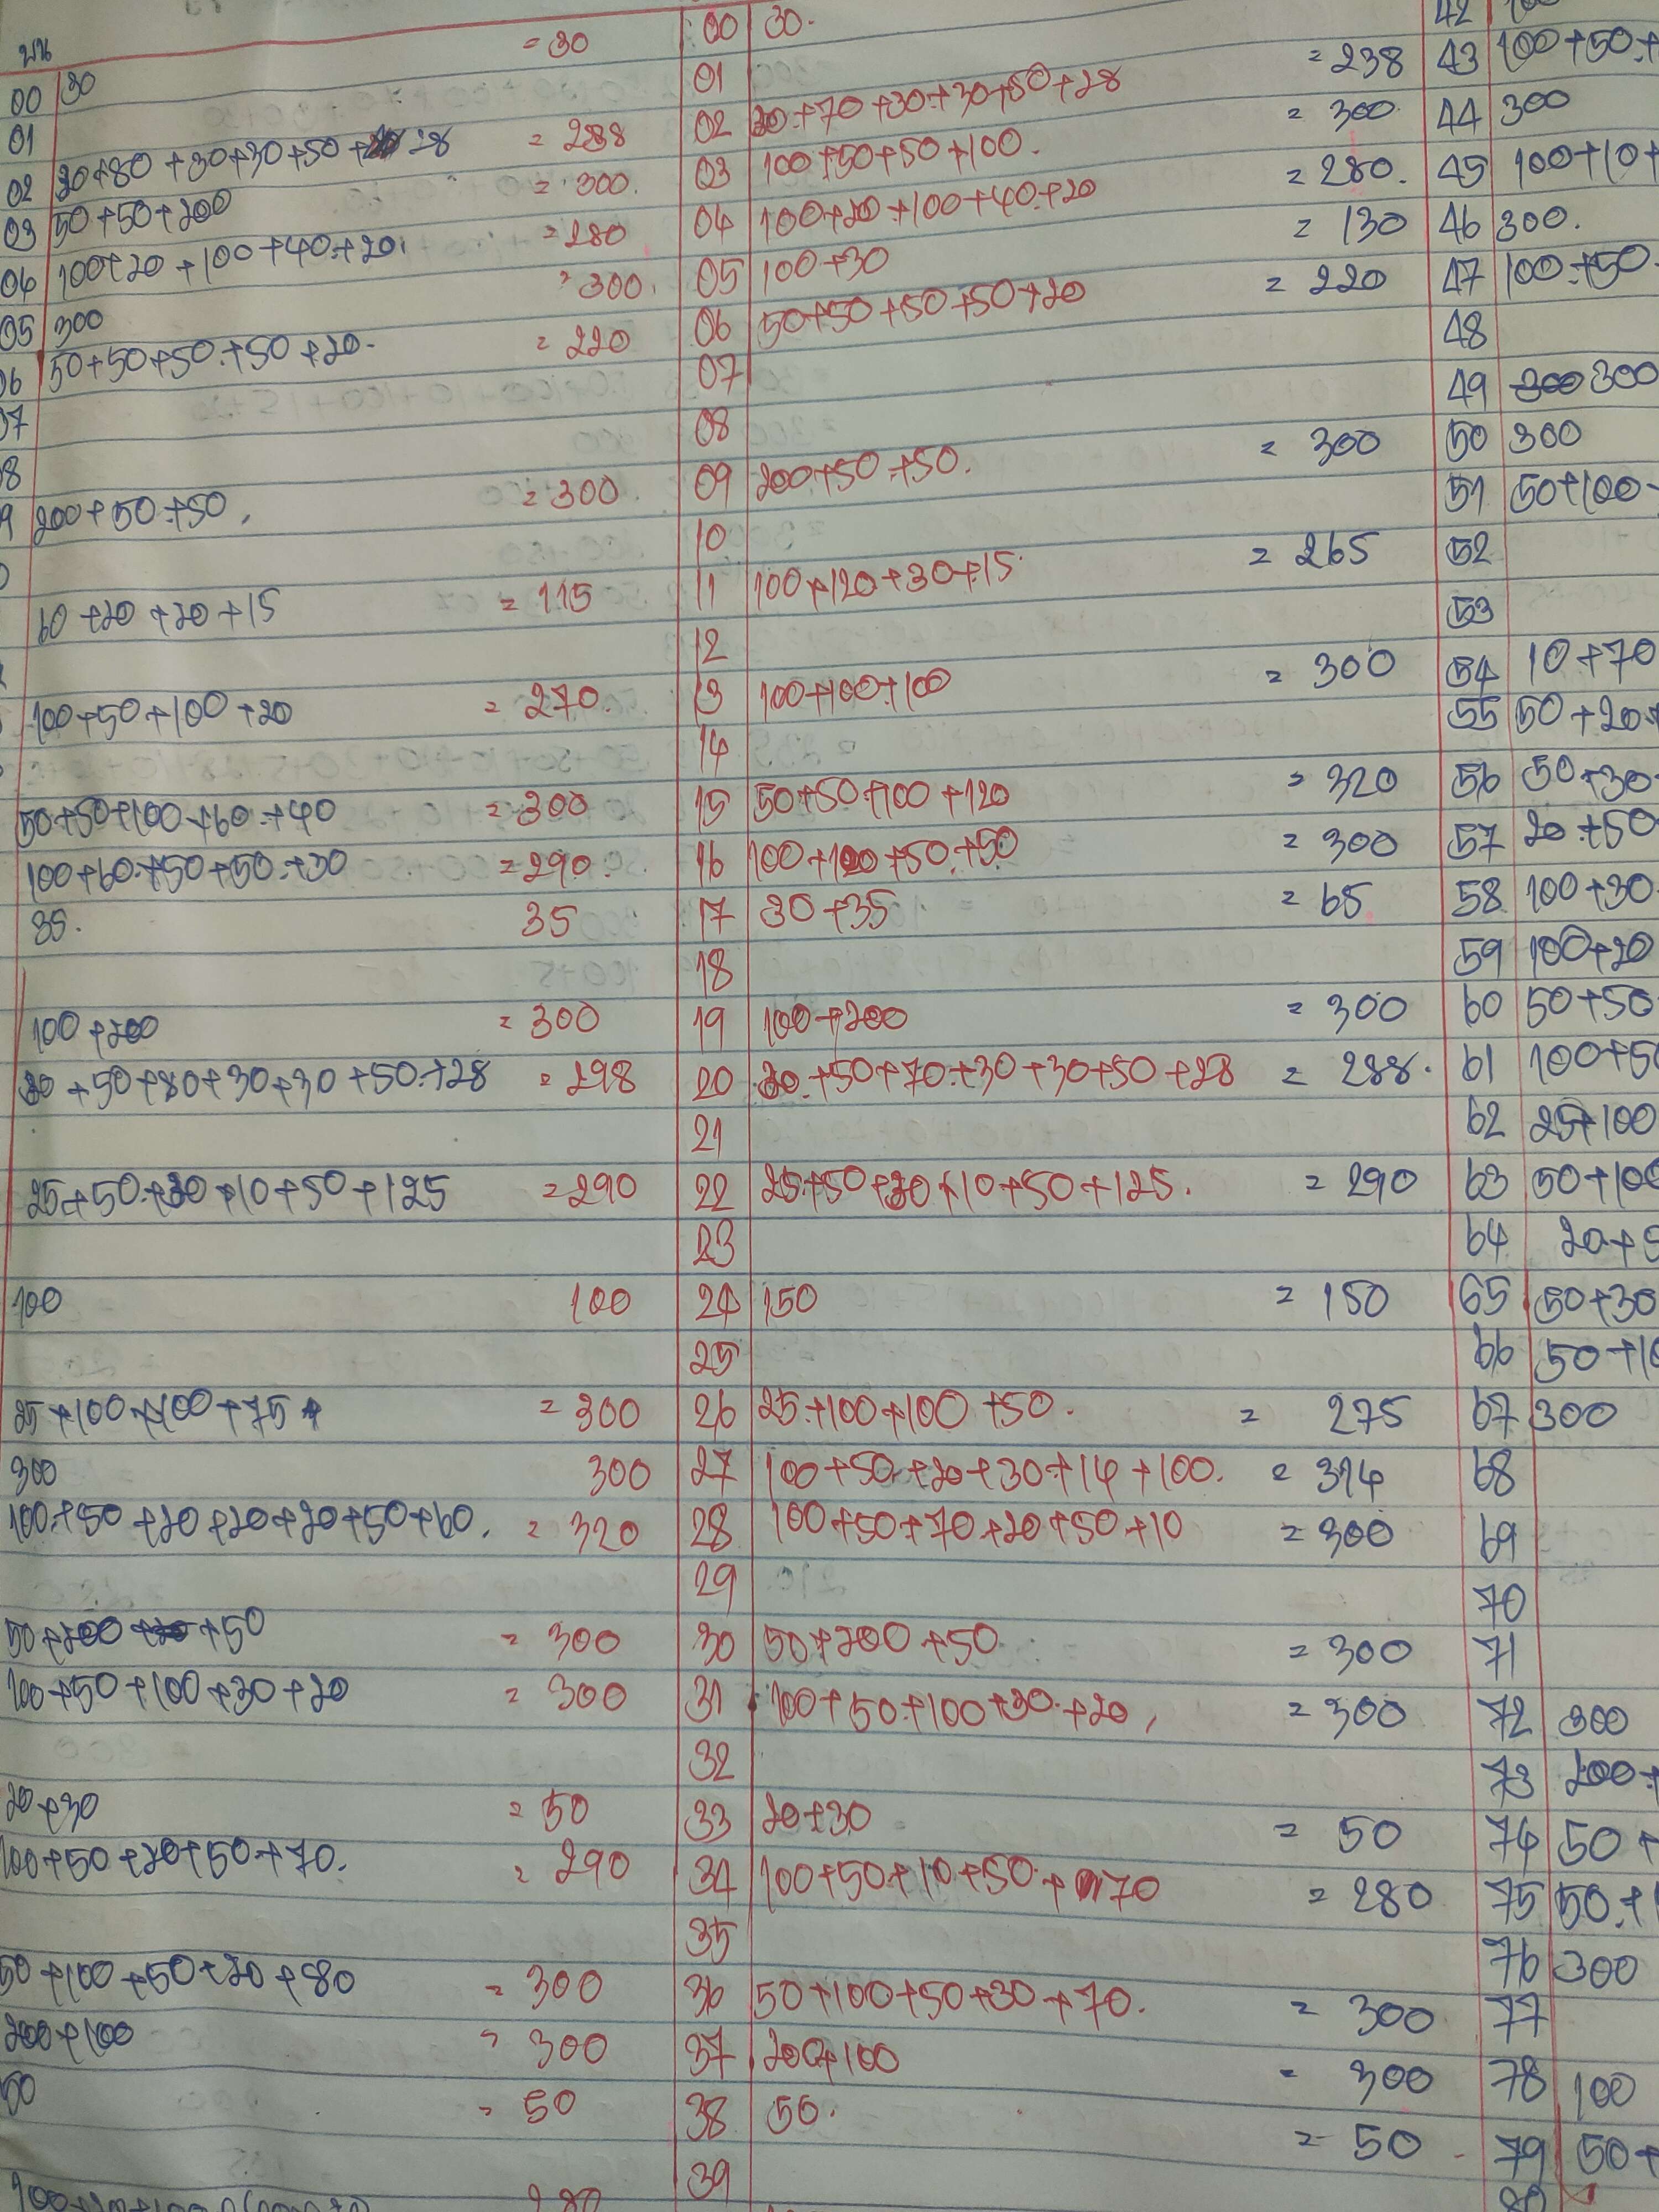 บน
00 30 =30
01
02 30+80+30+30+50+28 =288
03 50+50+200 =300.
04 100+20+100+40+20 =280
05 300 =300.
06 50+50+50+50+20 =220
07
08
09 200+50+50, =300.
60+20+20+15 =115
100+50+100+20 =270.
50+50+100+60+40 =300
100+60+50+50+30 =290.
35. 35
100+200 =300
20+50+80+30+30+50+28 =298
25+50+30+10+50+125 =290
100 100
25+100+100+75 =300
300 300
100+50+20+20+20+50+60. =320
50+200+50 =300
100+50+100+30+20 =300
20+30 =50
100+50+20+50+70. =290
50+100+50+20+80 =300
200+100 =300
50 =50
280
00 30.
01
02 30+70+30+30+50+28 =238
03 100+50+50+100. =300.
04 100+20+100+40+20 =280.
05 100+30 =130
06 50+50+50+50+20 =220
07
08
09 200+50+50. =300
10
11 100+120+30+15. =265
12
13 100+100+100 =300
14
15 50+50+100+120 =320
16 100+100+50+50 =300
17 30+35 =65
18
19 100+200 =300
20 30+50+70+30+30+50+28 =288.
21
22 25+50+30+10+50+125. =290
23
24 150 =150
25
26 25+100+100+50. =275
27 100+50+20+30+14+100. =314
28 100+50+70+20+50+10 =300
29
30 50+200+50 =300
31 100+50+100+30+20, =300
32
33 20+30 =50
34 100+50+10+50+70 =280
35
36 50+100+50+30+70. =300
37 200+100 =300
38 50. =50
39
42
43 100+50+
44 300
45 100+10+
46 300.
47 100+50
48
49 300 300
50 300
51 50+100
52
53
54 10+70
55 50+20+
56 50+30
57 20+50
58 100+30
59 100+20
60 50+50
61 100+50
62 25+100
63 50+100
64 20+
65 50+30
66 50+10
67 300
68
69
70
71
72 300
73 200+
74 50+
75 50+1
76 300
77
78 100
79 50+
80